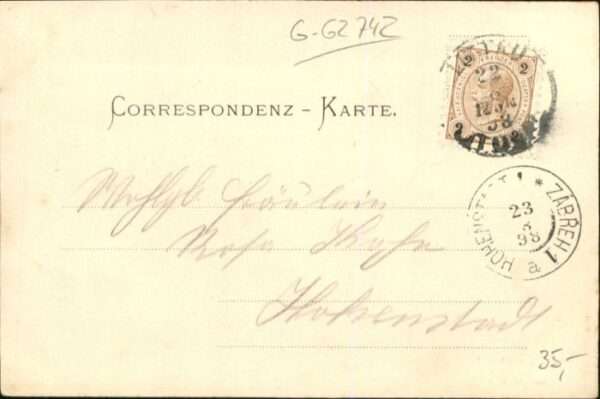 G-G2742
CORRESPONDENZ - KARTE.
2 2
22
98
HOHENSTADT 1 * ZÁBŘEH 1
23
3
98
a
Wohlgb. Fräulein
Rosa
Hohenstadt
35,-